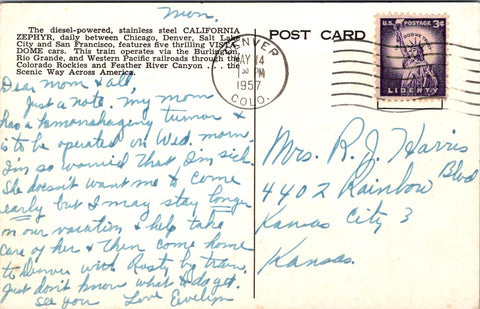 Mon.
The diesel-powered, stainless steel CALIFORNIA
ZEPHYR, daily between Chicago, Denver, Salt Lake
City and San Francisco, features five thrilling VISTA-
DOME cars. This train operates via the Burlington,
Rio Grande, and Western Pacific railroads through the
Colorado Rockies and Feather River Canyon . . . the
Scenic Way Across America.
Dear Mom & all,
Just a note. My mom
has a hemorrhaging tumor &
is to be operated on Wed. morn.
I'm so worried that I'm sick.
She doesn't want me to come
early but I may stay longer
on our vacation & help take
care of her & then come home
to Denver with Rusty by train.
Just don't know what to do yet.
See you Love Evelyn
POST CARD
DENVER
MAY 14
3 PM
1957
COLO.
U.S. POSTAGE 3¢
IN GOD WE TRUST
LIBERTY
Mrs. R. J. Harris
4402 Rainbow Blvd
Kansas City 3
Kansas.